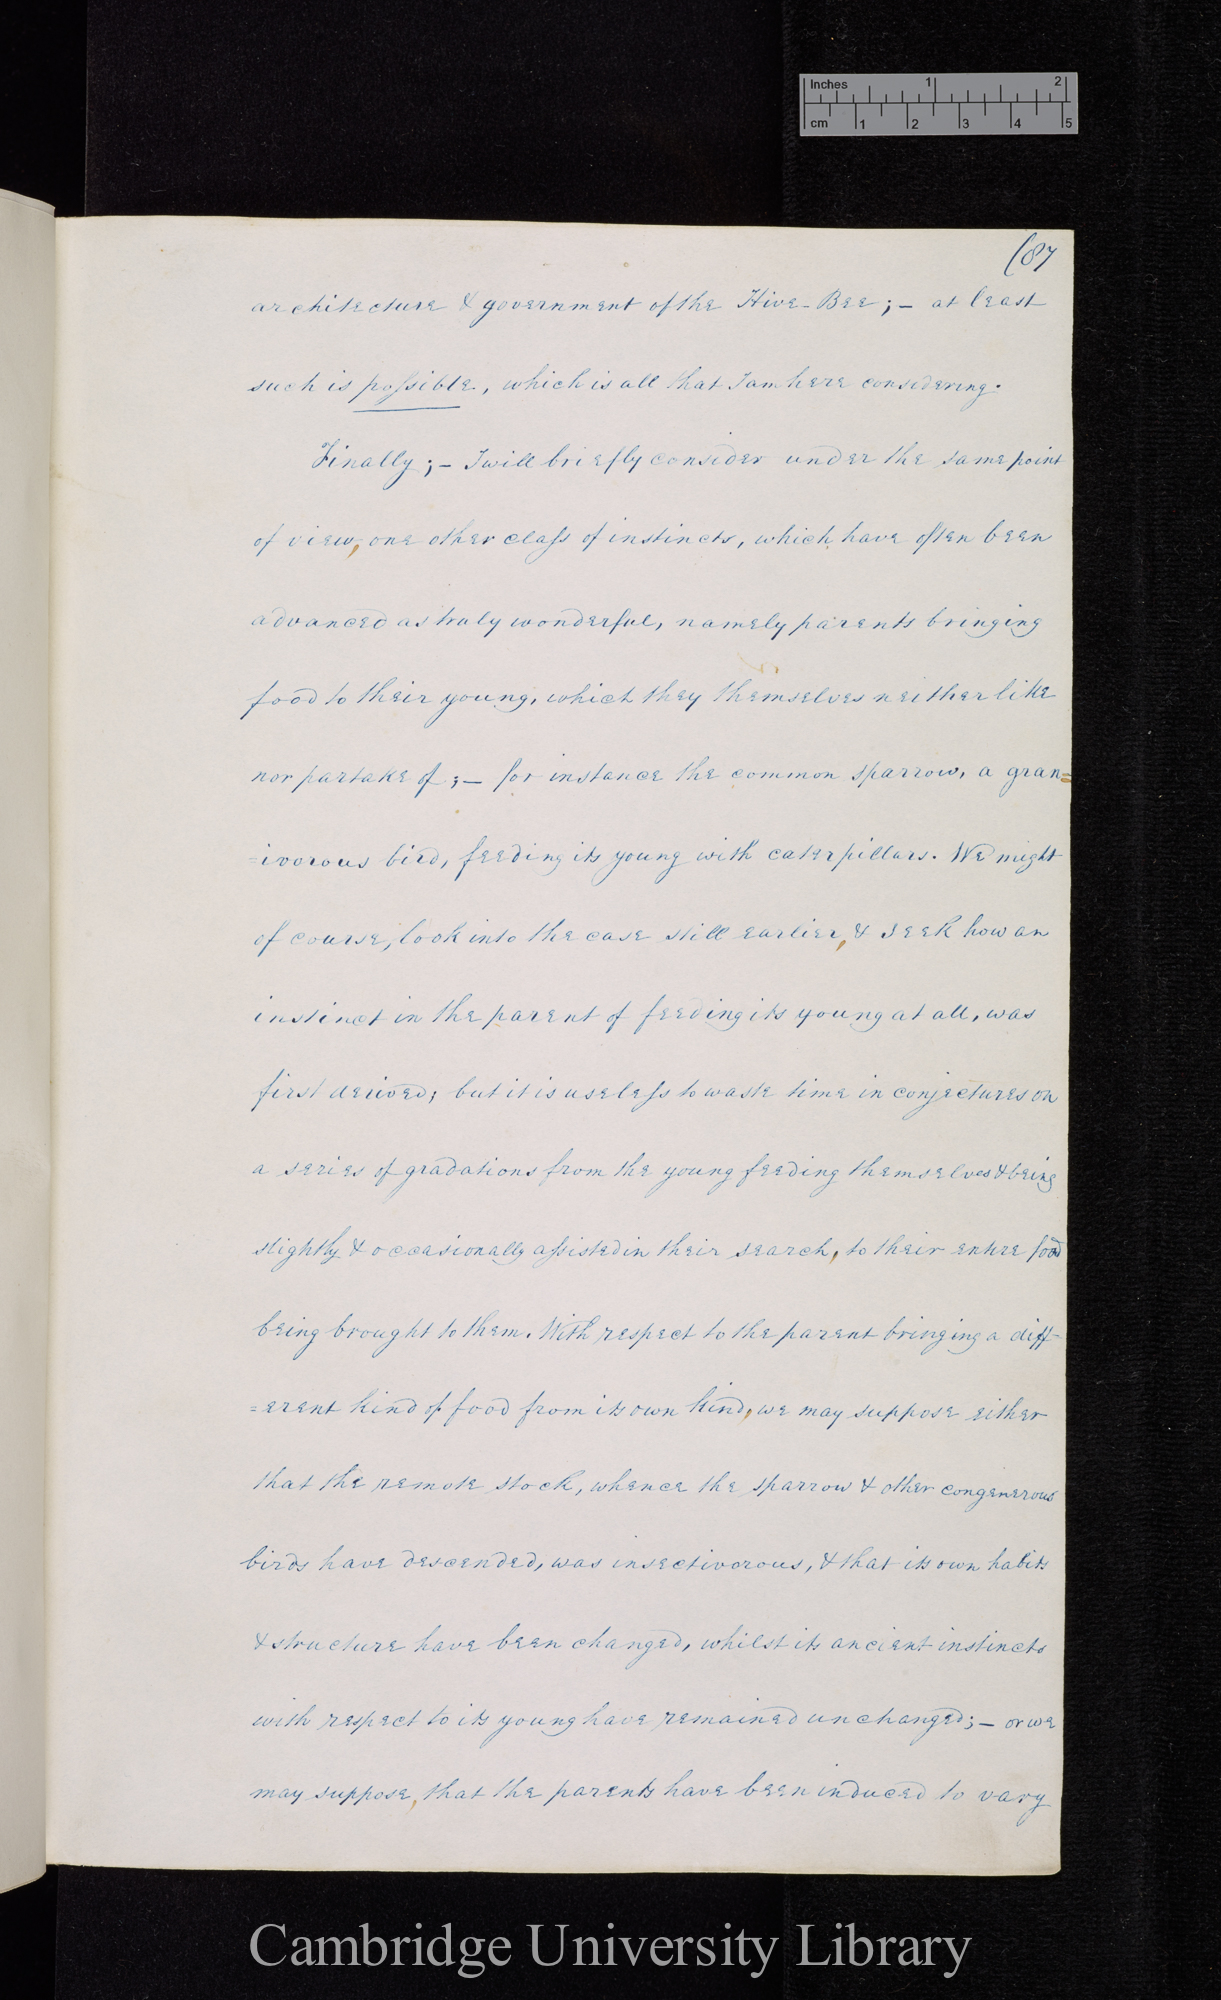 Inches 1 2
cm 1 2 3 4 5
(87
architecture & government of the Hive-Bee;— at least
such is possible, which is all that I am here considering.
Finally;— I will briefly consider under the same point
of view, one other class of instincts, which have often been
advanced as truly wonderful, namely parents bringing
food to their young, which they themselves neither like
nor partake of;— for instance the common sparrow, a gran=
=ivorous bird, feeding its young with caterpillars. We might
of course, look into the case still earlier, & seek how an
instinct in the parent of feeding its young at all, was
first derived; but it is useless to waste time in conjectures on
a series of gradations from the young feeding themselves & being
slightly & occasionally assisted in their search, to their entire food
being brought to them. With respect to the parent bringing a diff-
=erent kind of food from its own kind, we may suppose either
that the remote stock, whence the sparrow & other congenerous
birds have descended, was insectivorous, & that its own habits
& structure have been changed, whilst its ancient instincts
with respect to its young have remained unchanged;— or we
may suppose, that the parents have been induced to vary
Cambridge University Library